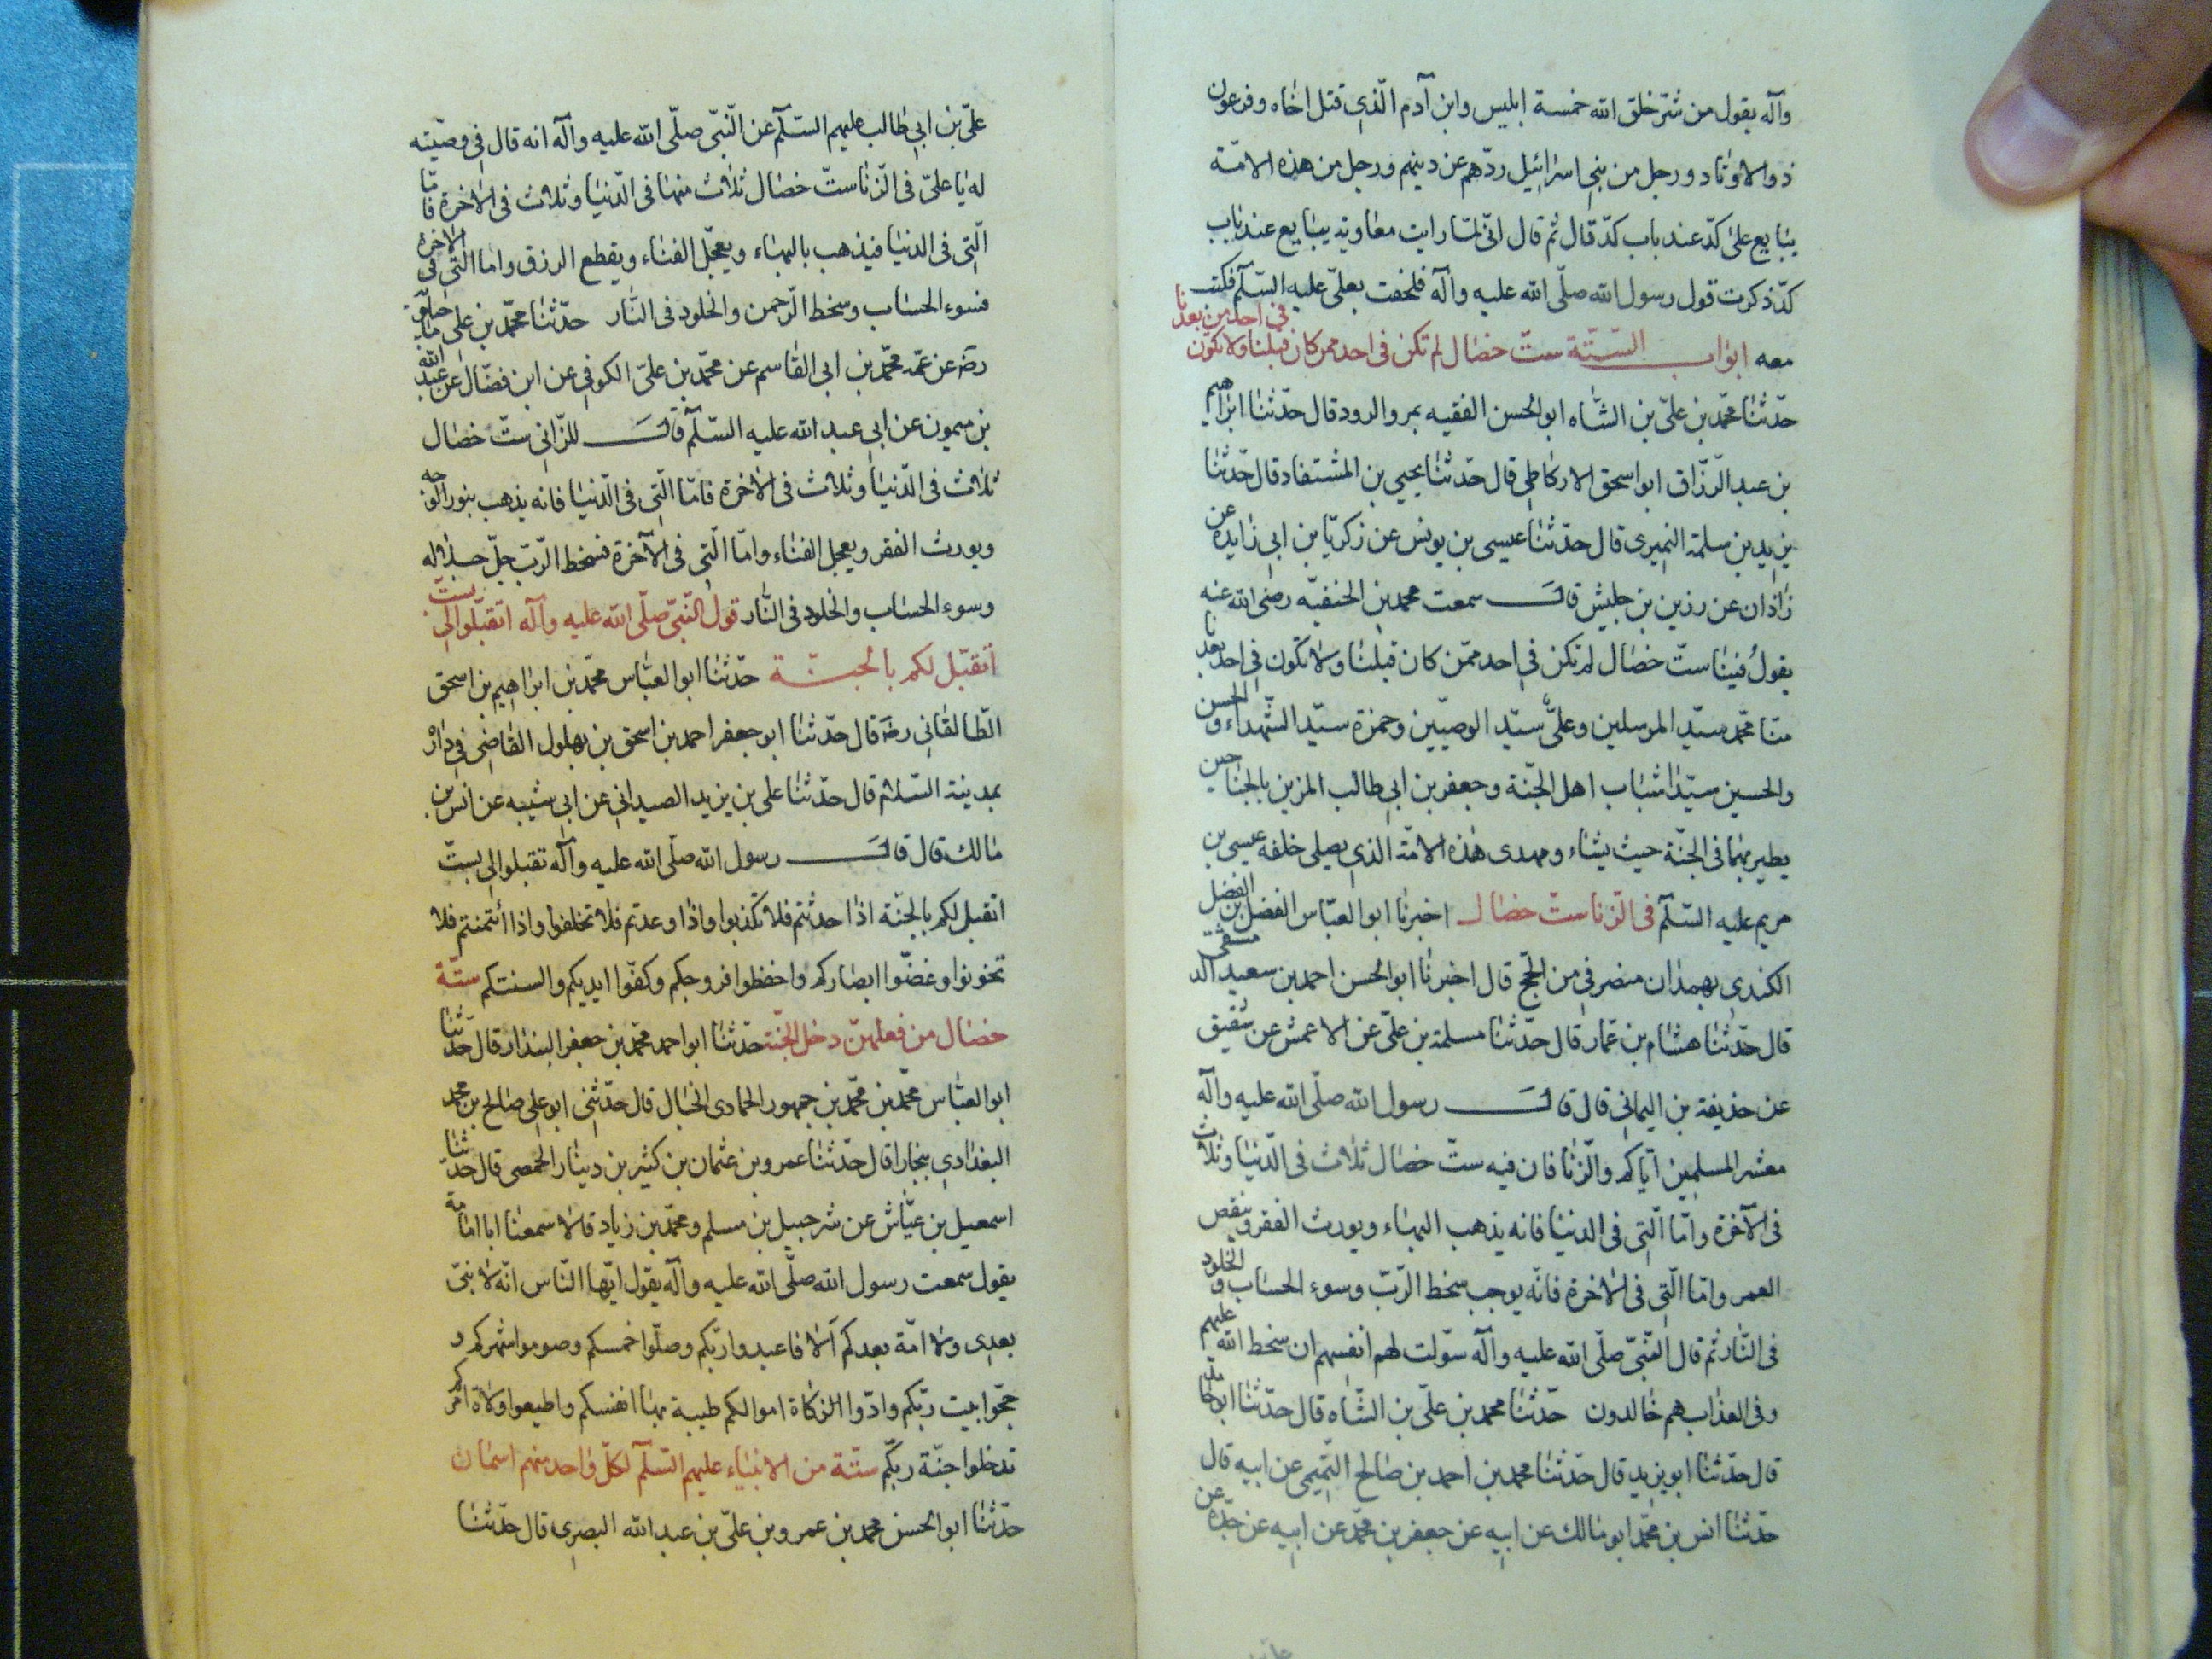 وآله يقول من شرّ خلق الله خمسة ابليس وابن آدم الّذي قتل اخاه وفرعون
ذوالاوتاد ورجل من بني اسرائيل ردّهم عن دينهم ورجل من هذه الامّة
يبايع على كدّ عند باب كدّ قال ثم قال انّى لمّا رايت معاوية يبايع عند باب
كدّ ذكرت قول رسول الله صلّى الله عليه وآله فلحقت بعلىّ عليه السّلم فكنت
معه ابواب الستّة ستّ خصال لم تكن فى احد ممن كان قبلنا ولا تكون في احد من بعدنا
حدّثنا محمّد بن علىّ بن الشّاه ابوالحسن الفقيه بمروالرود قال حدّثنا ابراهيم
بن عبد الرّزّاق ابواسحق الاركاطى قال حدّثنا يحيى بن المستفاد قال حدّثنا
يزيد بن سلمة النميرى قال حدّثنا عيسى بن يونس عن زكريّا بن ابى زايدة عن
زاذان عن رزين بن حبيش قال سمعت محمد بن الحنفيّه رضى الله عنه
يقولُ فينا ستّ خصال لم تكن في احد ممّن كان قبلنا ولا تكون في احد بعدنا
منّا محمّد سيّد المرسلين وعلىّ سيّد الوصيّين وحمزة سيّد الشّهداء والحسن
والحسين سيّدا شباب اهل الجنّة وجعفر بن ابي طالب المزين بالجناحين
يطير بهما فى الجنّة حيث يشاء ومهدى هذه الامّة الذي يصلى خلفه عيسى بن
مريم عليه السّلم فى الزنا ستّ خصال اخبرنا ابوالعبّاس الفضل بن الفضل
الكندى بهمذان منصرفي من الحجّ قال اخبرنا ابوالحسن احمد بن سعيد الدمشقى
قال حدّثنا هشام بن عمّار قال حدّثنا مسلمة بن علىّ عن الاعمش عن شقيق
عن حذيفة بن اليمانى قال قال رسول الله صلّى الله عليه وآله
معشر المسلمين ايّاكم والزّنا فان فيه ستّ خصال ثلاث فى الدّنيا وثلاث
فى الآخرة وامّا الّتى فى الدنيا فانه يذهب البهاء ويورث الفقر وينقص
العمر وامّا الّتى فى الاخرة فانّه يوجب سخط الرّبّ وسوء الحساب والخلود
فى النّار ثم قال النّبىّ صلّى الله عليه وآله سوّلت لهم انفسهم ان سخط الله عليهم
وفى العذاب هم خالدون حدّثنا محمد بن علىّ بن الشّاه قال حدّثنا ابوحامد
قال حدّثنا ابويزيد قال حدّثنا محمد بن احمد بن صالح التّميمى عن ابيه قال
حدّثنا انس بن محمّد ابومالك عن ابيه عن جعفر بن محمّد عن ابيه عن جدّه عن
علىّ بن ابي طالب عليهم السّلم عن النّبّى صلّى الله عليه وآله انه قال في وصيّته
له يا علىّ فى الزنا ستّ خصال ثلاث منها فى الدّنيا وثلاث فى الاخرة فامّا
الّتى فى الدنيا فيذهب بالبهاء ويعجّل الفناء ويقطع الرزق واما الّتى فى الاخرة
فسوء الحساب وسخط الرّحمن والخلود فى النّار حدّثنا محمّد بن على ماجيلويه
رضه عن عمّه محمّد بن ابى القاسم عن محمّد بن علىّ الكوفي عن ابن فضّال عن عبد الله
بن ميمون عن ابي عبد الله عليه السّلم قال للزّانى ستّ خصال
ثلاث فى الدّنيا وثلاث فى الاخرة فامّا الّتى فى الدّنيا فانه يذهب بنور الوجه
ويورث الفقر ويعجل الفناء وامّا الّتى فى الآخرة فسخط الرّبّ جلّ جلاله
وسوء الحساب والخلود فى النّار قول النّبىّ صلّى الله عليه وآله اتقبّلوا الىّ بستّ
اتقبّل لكم بالجنّة حدّثنا ابوالعبّاس محمّد بن ابراهيم بن اسحق
الطّالقاني رضه قال حدّثنا ابوجعفر احمد بن اسحق بن بهلول القاضى في داره
بمدينة السّلام قال حدّثنا على بن يزيد الصيدانى عن ابى شيبه عن انس بن
مالك قال قال رسول الله صلّى الله عليه وآله تقبلوا الى بستّ
اتقبل لكم بالجنّة اذا حدثتم فلا تكذبوا واذا وعدتم فلا تخلفوا واذا ائتمنتم فلا
تخونوا وغضّوا ابصاركم واحفظوا فروجكم وكفّوا ايديكم والسنتكم ستّة
خصال من فعلهنّ دخل الجنّة حدّثنا ابواحمد محمّد بن جعفر البندار قال حدّثنا
ابوالعبّاس محمّد بن محمّد بن جمهور الحمادى الخبال قال حدّثنى ابوعلى صالح بن محمد
البغدادى ببخارا قال حدّثنا عمرو بن عثمان بن كثير بن دينار الحمصى قال حدثنا
اسمعيل بن عيّاش عن شرحبيل بن مسلم ومحمّد بن زياد قالا سمعنا ابا امامة
يقول سمعت رسول الله صلّى الله عليه وآله يقول ايّها النّاس انّه لا نبىّ
بعدى ولا امّة بعدكم الا فاعبدوا ربّكم وصلّوا خمسكم وصوموا شهركم و
حجّوا بيت ربّكم وادّوا الزكاة اموالكم طيبة بها انفسكم واطيعوا ولاة امركم
تدخلوا جنّة ربّكم ستّة من الانبياء عليهم السّلم لكلّ واحد منهم اسمان
حدّثنا ابوالحسن محمد بن عمرو بن علىّ بن عبد الله البصرى قال حدّثنا